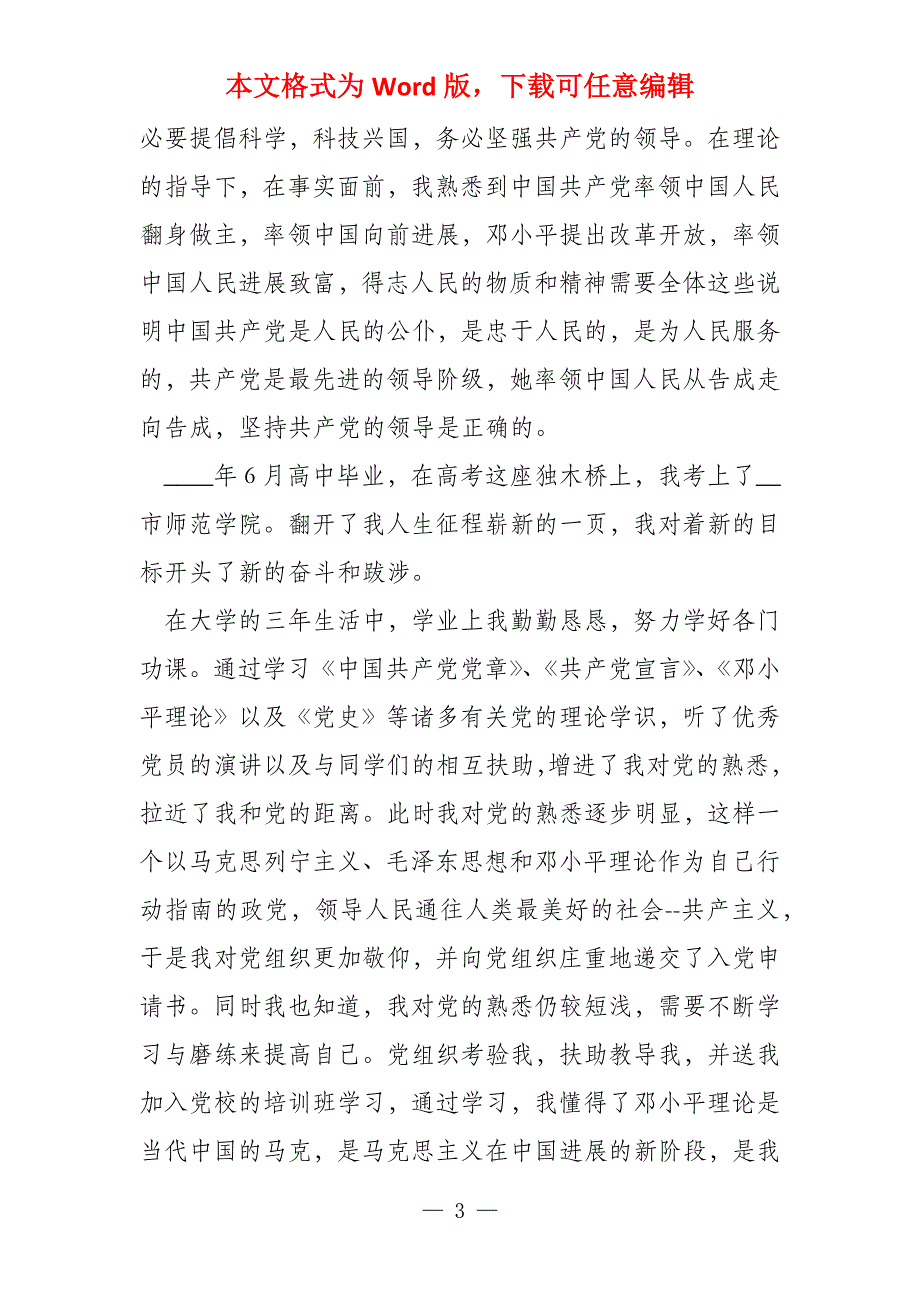 本文格式为 Word 版，下载可任意编辑
必要提倡科学，科技兴国，务必坚强共产党的领导。在理论
的指导下，在事实面前，我熟悉到中国共产党率领中国人民
翻身做主，率领中国向前进展，邓小平提出改革开放，率领
中国人民进展致富，得志人民的物质和精神需要全体这些说
明中国共产党是人民的公仆，是忠于人民的，是为人民服务
的，共产党是最先进的领导阶级，她率领中国人民从告成走
向告成，坚持共产党的领导是正确的。
____年 6 月高中毕业，在高考这座独木桥上，我考上了__
市师范学院。翻开了我人生征程崭新的一页，我对着新的目
标开头了新的奋斗和跋涉。
在大学的三年生活中，学业上我勤勤恳恳，努力学好各门
功课。通过学习《中国共产党党章》、《共产党宣言》、《邓小
平理论》以及《党史》等诸多有关党的理论学识，听了优秀
党员的演讲以及与同学们的相互扶助，增进了我对党的熟悉，
拉近了我和党的距离。此时我对党的熟悉逐步明显，这样一
个以马克思列宁主义、毛泽东思想和邓小平理论作为自己行
动指南的政党，领导人民通往人类最美好的社会--共产主义，
于是我对党组织更加敬仰，并向党组织庄重地递交了入党申
请书。同时我也知道，我对党的熟悉仍较短浅，需要不断学
习与磨练来提高自己。党组织考验我，扶助教导我，并送我
加入党校的培训班学习，通过学习，我懂得了邓小平理论是
当代中国的马克，是马克思主义在中国进展的新阶段，是我
— 3 —